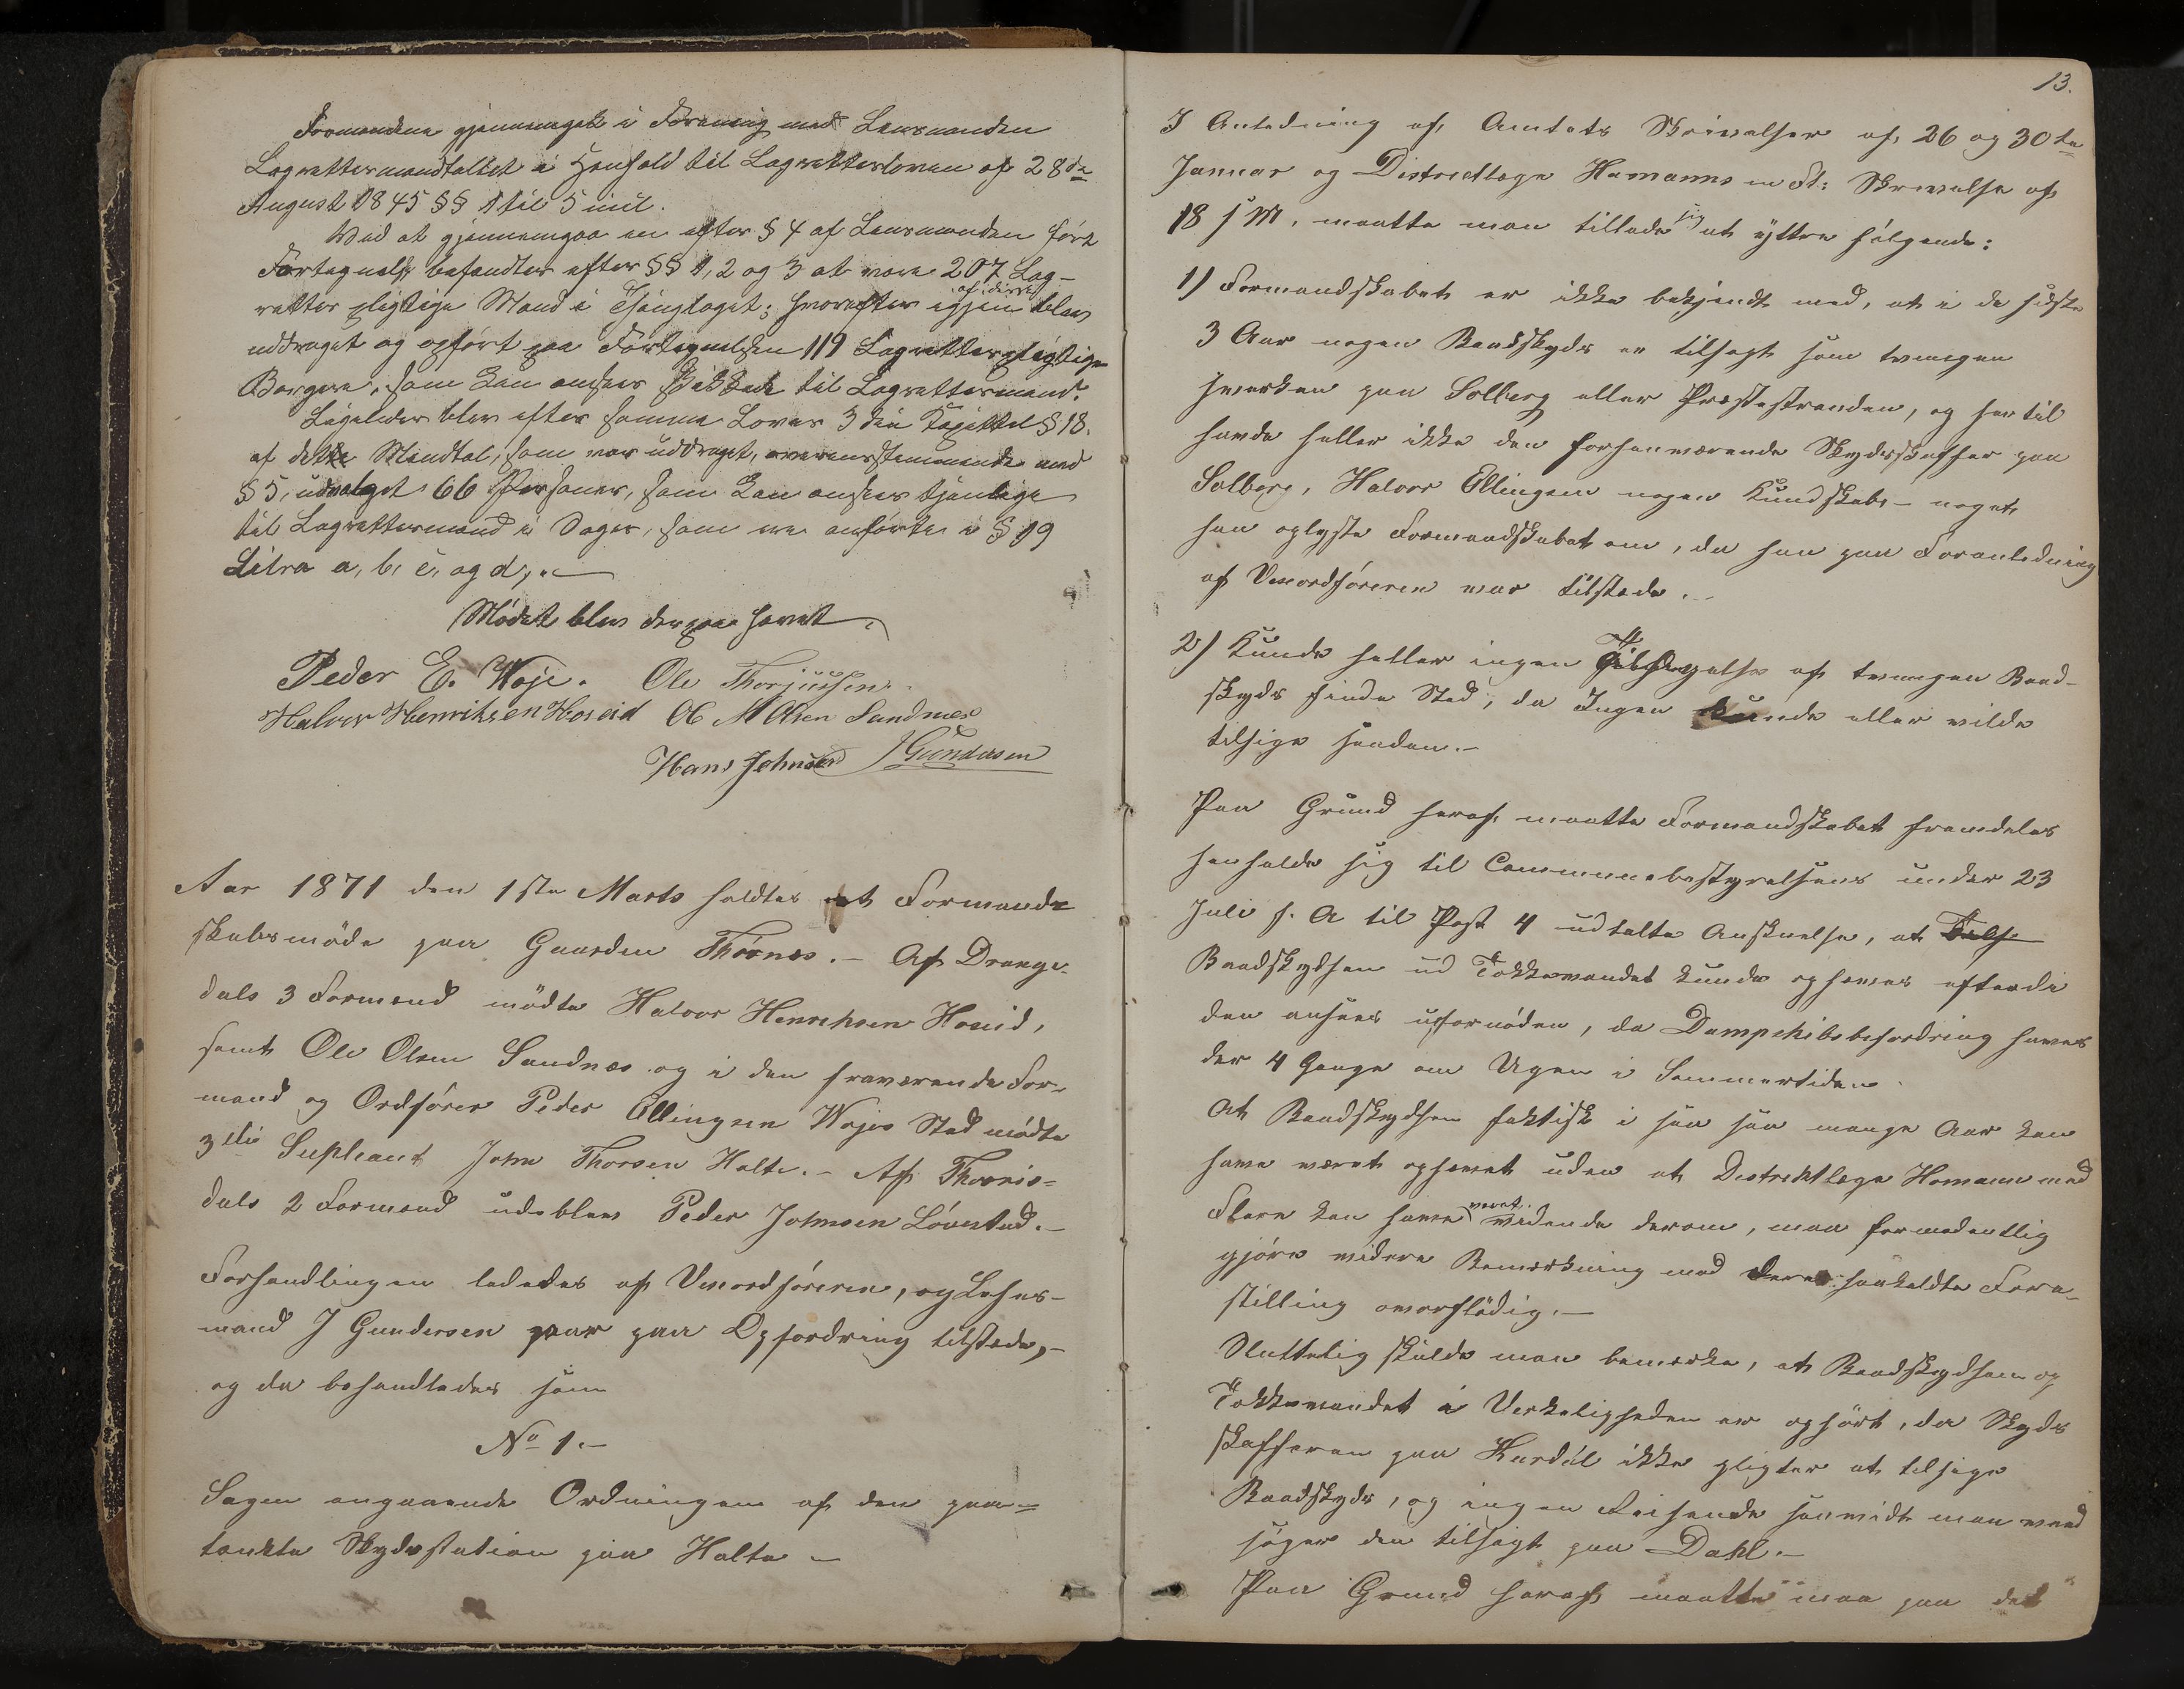 Formændene gjennemgik i Forening med Lensmanden
Lagrettesmandtallet i Henhold til Lagrettesloven af 28de
August 1845 §§ 1 til 5 incl.
Ved at gjennemgaa en efter § 4 af Lensmanden ført
Fortegnelse befandtes efter §§ 1, 2 og 3 at være 207 Lag-
rettes pligtige Mænd i Thinglaget; hvorefter igjen af disse blev
uddraget og opført paa Fortegnelsen 119 Lagrettespligtige
Borgere, som kan ansees skikkede til Lagrettesmænd.
Ligeledes blev efter samme Lovs 3die Kapittel § 18.
af dette Mandtal, som var uddraget, overensstemmende med
§ 5, udvalgt 66 Personer, som kan ansees tjenlige
til Lagrettesmænd i Sager, som ere anførte i § 19
Litra a, b, c, og d,.
Mødet blev derpaa hævet.
Peder E. Woje. Ole Thorjussen.
Halvor Henriksen Hoseid Ole M Olsen Sandnes
Hans Johnsen J Gundersen
Aar 1871 den 1ste Marts holdtes et Formand-
skabsmøde paa Gaarden Thornes. - Af Drange-
dals 3 Formænd mødte Halvor Henrehsen Hoseid,
samt Ole Olsen Sandnes og i den fraværende For-
mand og Ordfører Peder Ellingsen Wojes Sted mødte
3die Supleant John Thorsen Holte. - Af Thorris-
dals 2 Formænd udeblev Peder Johnsen Løvstad. -
Forhandlingen lededes af Viseordføreren, og Lehns-
mand J Gundersen var paa Opfordring tilstede, -
og da behandledes som
No 1. -
Sagen angaaende Ordningen af den paa-
tænkte Skydsstation paa Holte -
13.
I Anledning af Amtets Skrivelser af 26 og 30te
Januar og Districtlæge Homanns Skrivelse af
18 f M. maatte man tillade sig at yttre følgende:
1) Formandskabet er ikke bekjendt med, at i de sidste
3 Aar nogen Baadskyds er tilsagt som tvungen
hverken paa Solberg eller Præstestranden, og hertil
havde heller ikke den forhenværende Skydsskaffer paa
Solberg, Halvor Ellingsen nogen Kundskab - noget
han oplyste Formandskabet om, da han paa Foranledning
af Viseordføreren var tilstede. -
2) Kunde heller ingen Tilsigelse af tvungen Baad-
skyds finde Sted, da Ingen kunde eller vilde
tilsige saadan. -
Paa Grund heraf maatte Formandskabet fremdeles
henholde sig til Communebestyrelsens under 23
Juli f. A til Post 4 udtalte Anskuelse, at Tilsi
Baadskydsen ud Tokkevandet kunde ophæves efterdi
den ansees ufornøden, da Dampskibsbefordring haves
der 4 Gange om Ugen i Sommertiden.
At Baadskydsen faktisk i saa saa mange Aar kan
have været ophævet uden at Destrektlæge Homann med
Flere kan have været vidende derom, maa formodentlig
gjøre videre Bemærkning med deres saakaldte Fore-
stilling overflødig. -
Sluttelig skulde man bemærke, at Baadskydsen og
Tokkevandet i Verkeligheden er ophørt, da Skyds
skafferen paa Hurdål ikke pligter at tilsige
Baadskyds, og ingen Reisende saavidt man veed
søger den tilsagt paa Dahl. -
Paa Grund heraf maatte man paa det